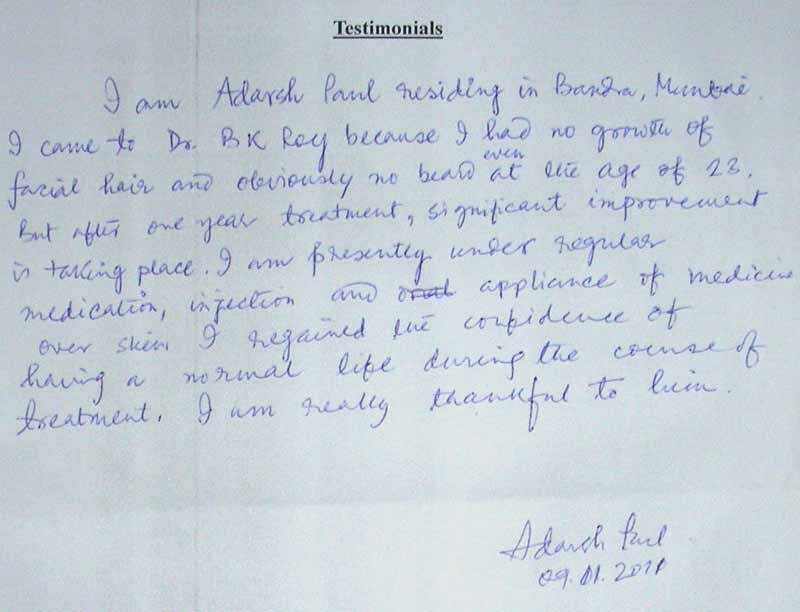 Testimonials
I am Adarsh Paul residing in Bandra, Mumbai.
I came to Dr. B K Roy because I had no growth of
facial hair and obviously no beard even at the age of 23.
But after one year treatment, significant improvement
is taking place. I am presently under regular
medication, injection and oral appliance of medicine
over skin. I regained the confidence of
having a normal life during the course of
treatment. I am really thankful to him.
Adarsh Paul
09.01.2011